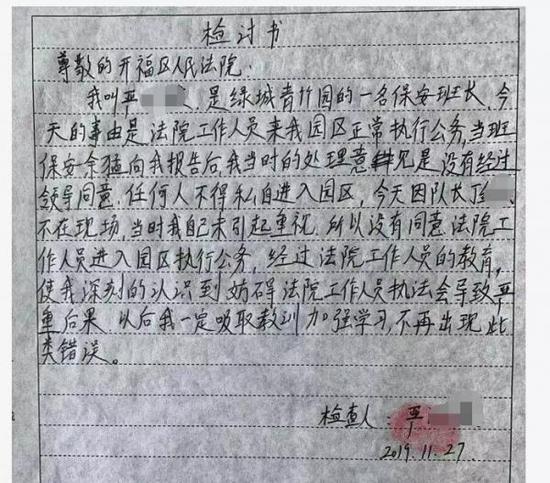 检讨书
尊敬的开福区人民法院.
我叫亚 是绿城青竹园的一名保安班长、今
天的事由是法院工作人员来我园区正常执行公务,当班
保安余猛向我报告后,我当时的处理意见是没有经过
领导同意.任何人不得私自进入园区,今天因队长丁 、
不在现场,当时我自己未引起重视.所以没有同意法院工
作人员进入园区执行公务,经过法院工作人员的教育,
使我深刻的认识到妨碍法院工作人员执法会导致严
重后果.以后我一定吸取教训加强学习,不再出现此
类错误。
检查人:亚
2019.11.27